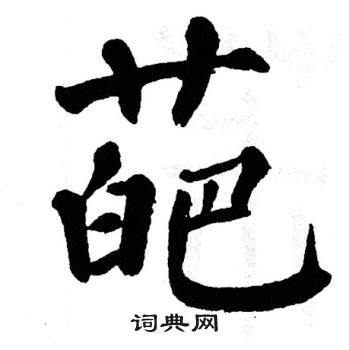 葩
词典网